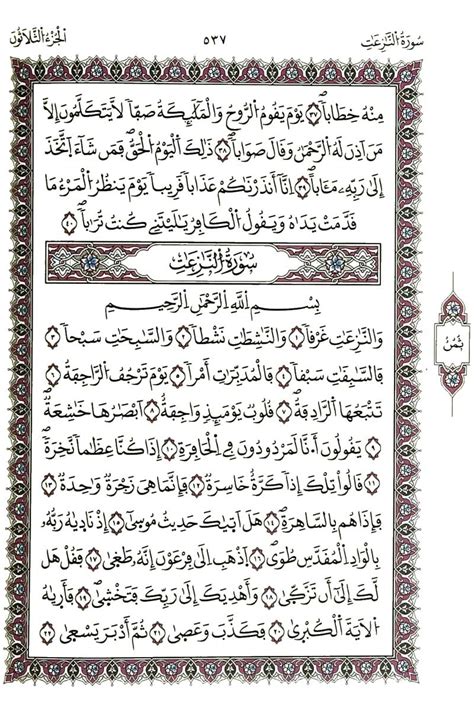 سُورَةُ النَّٰزِعَٰتِ
٥٣٧
الْجُزْءُ الثَّلَاثُونَ
مِنْهُ خِطَاباٗ ٣٧ يَوْمَ يَقُومُ الرُّوحُ وَالْمَلَٰٓئِكَةُ صَفّاٗ لَّا يَتَكَلَّمُونَ إِلَّا
مَنْ أَذِنَ لَهُ الرَّحْمَٰنُ وَقَالَ صَوَاباٗ ٣٨ ذَٰلِكَ الْيَوْمُ الْحَقُّ فَمَن شَآءَ اَتَّخَذَ
إِلَىٰ رَبِّهِۦ مَـَٔاباًۖ ٣٩ اِنَّآ أَنذَرْنَٰكُمْ عَذَاباٗ قَرِيباٗ يَوْمَ يَنظُرُ الْمَرْءُ مَا
قَدَّمَتْ يَدَاهُ وَيَقُولُ الْكَافِرُ يَٰلَيْتَنِے كُنتُ تُرَٰباَۢ ٤٠
سُورَةُ النَّٰزِعَٰتِ
بِسْمِ اللَّهِ الرَّحْمَٰنِ الرَّحِيمِ
وَالنَّٰزِعَٰتِ غَرْقاٗ ١ وَالنَّٰشِطَٰتِ نَشْطاٗ ٢ وَالسَّٰبِحَٰتِ سَبْحاٗ ٣
فَالسَّٰبِقَٰتِ سَبْقاٗ ٤ فَالْمُدَبِّرَٰتِ أَمْراٗ ٥ يَوْمَ تَرْجُفُ الرَّاجِفَةُ ٦
تَتْبَعُهَا الرَّادِفَةُۖ ٧ قُلُوبٞ يَوْمَئِذٖ وَاجِفَةٌ ٨ اَبْصَٰرُهَا خَٰشِعَةٞۖ
٩ يَقُولُونَ أَ۟نَّا لَمَرْدُودُونَ فِے الْحَافِرَةِ ١٠ إِذَا كُنَّا عِظَٰماٗ نَّخِرَةٗۖ
١١ قَالُواْ تِلْكَ إِذاٗ كَرَّةٌ خَاسِرَةٞۖ ١٢ فَإِنَّمَا هِيَ زَجْرَةٞ وَٰحِدَةٞ ١٣
فَإِذَا هُم بِالسَّاهِرَةِۖ ١٤ هَلَ اَتَيٰكَ حَدِيثُ مُوسَىٰٓ ١٥ إِذْ نَادَيٰهُ رَبُّهُۥ
بِالْوَادِ الْمُقَدَّسِ طُوَىۖ ١٦ اَذْهَبِ اِلَىٰ فِرْعَوْنَ إِنَّهُۥ طَغَىٰ ١٧ فَقُلْ هَل
لَّكَ إِلَىٰٓ أَن تَزَّكَّىٰ ١٨ وَأَهْدِيَكَ إِلَىٰ رَبِّكَ فَتَخْشَىٰۖ ١٩ فَأَرَيٰهُ
الْأٓيَةَ الْكُبْرَىٰ ٢٠ فَكَذَّبَ وَعَصَىٰ ٢١ ثُمَّ أَدْبَرَ يَسْعَىٰ ٢٢
ثُمُنُ